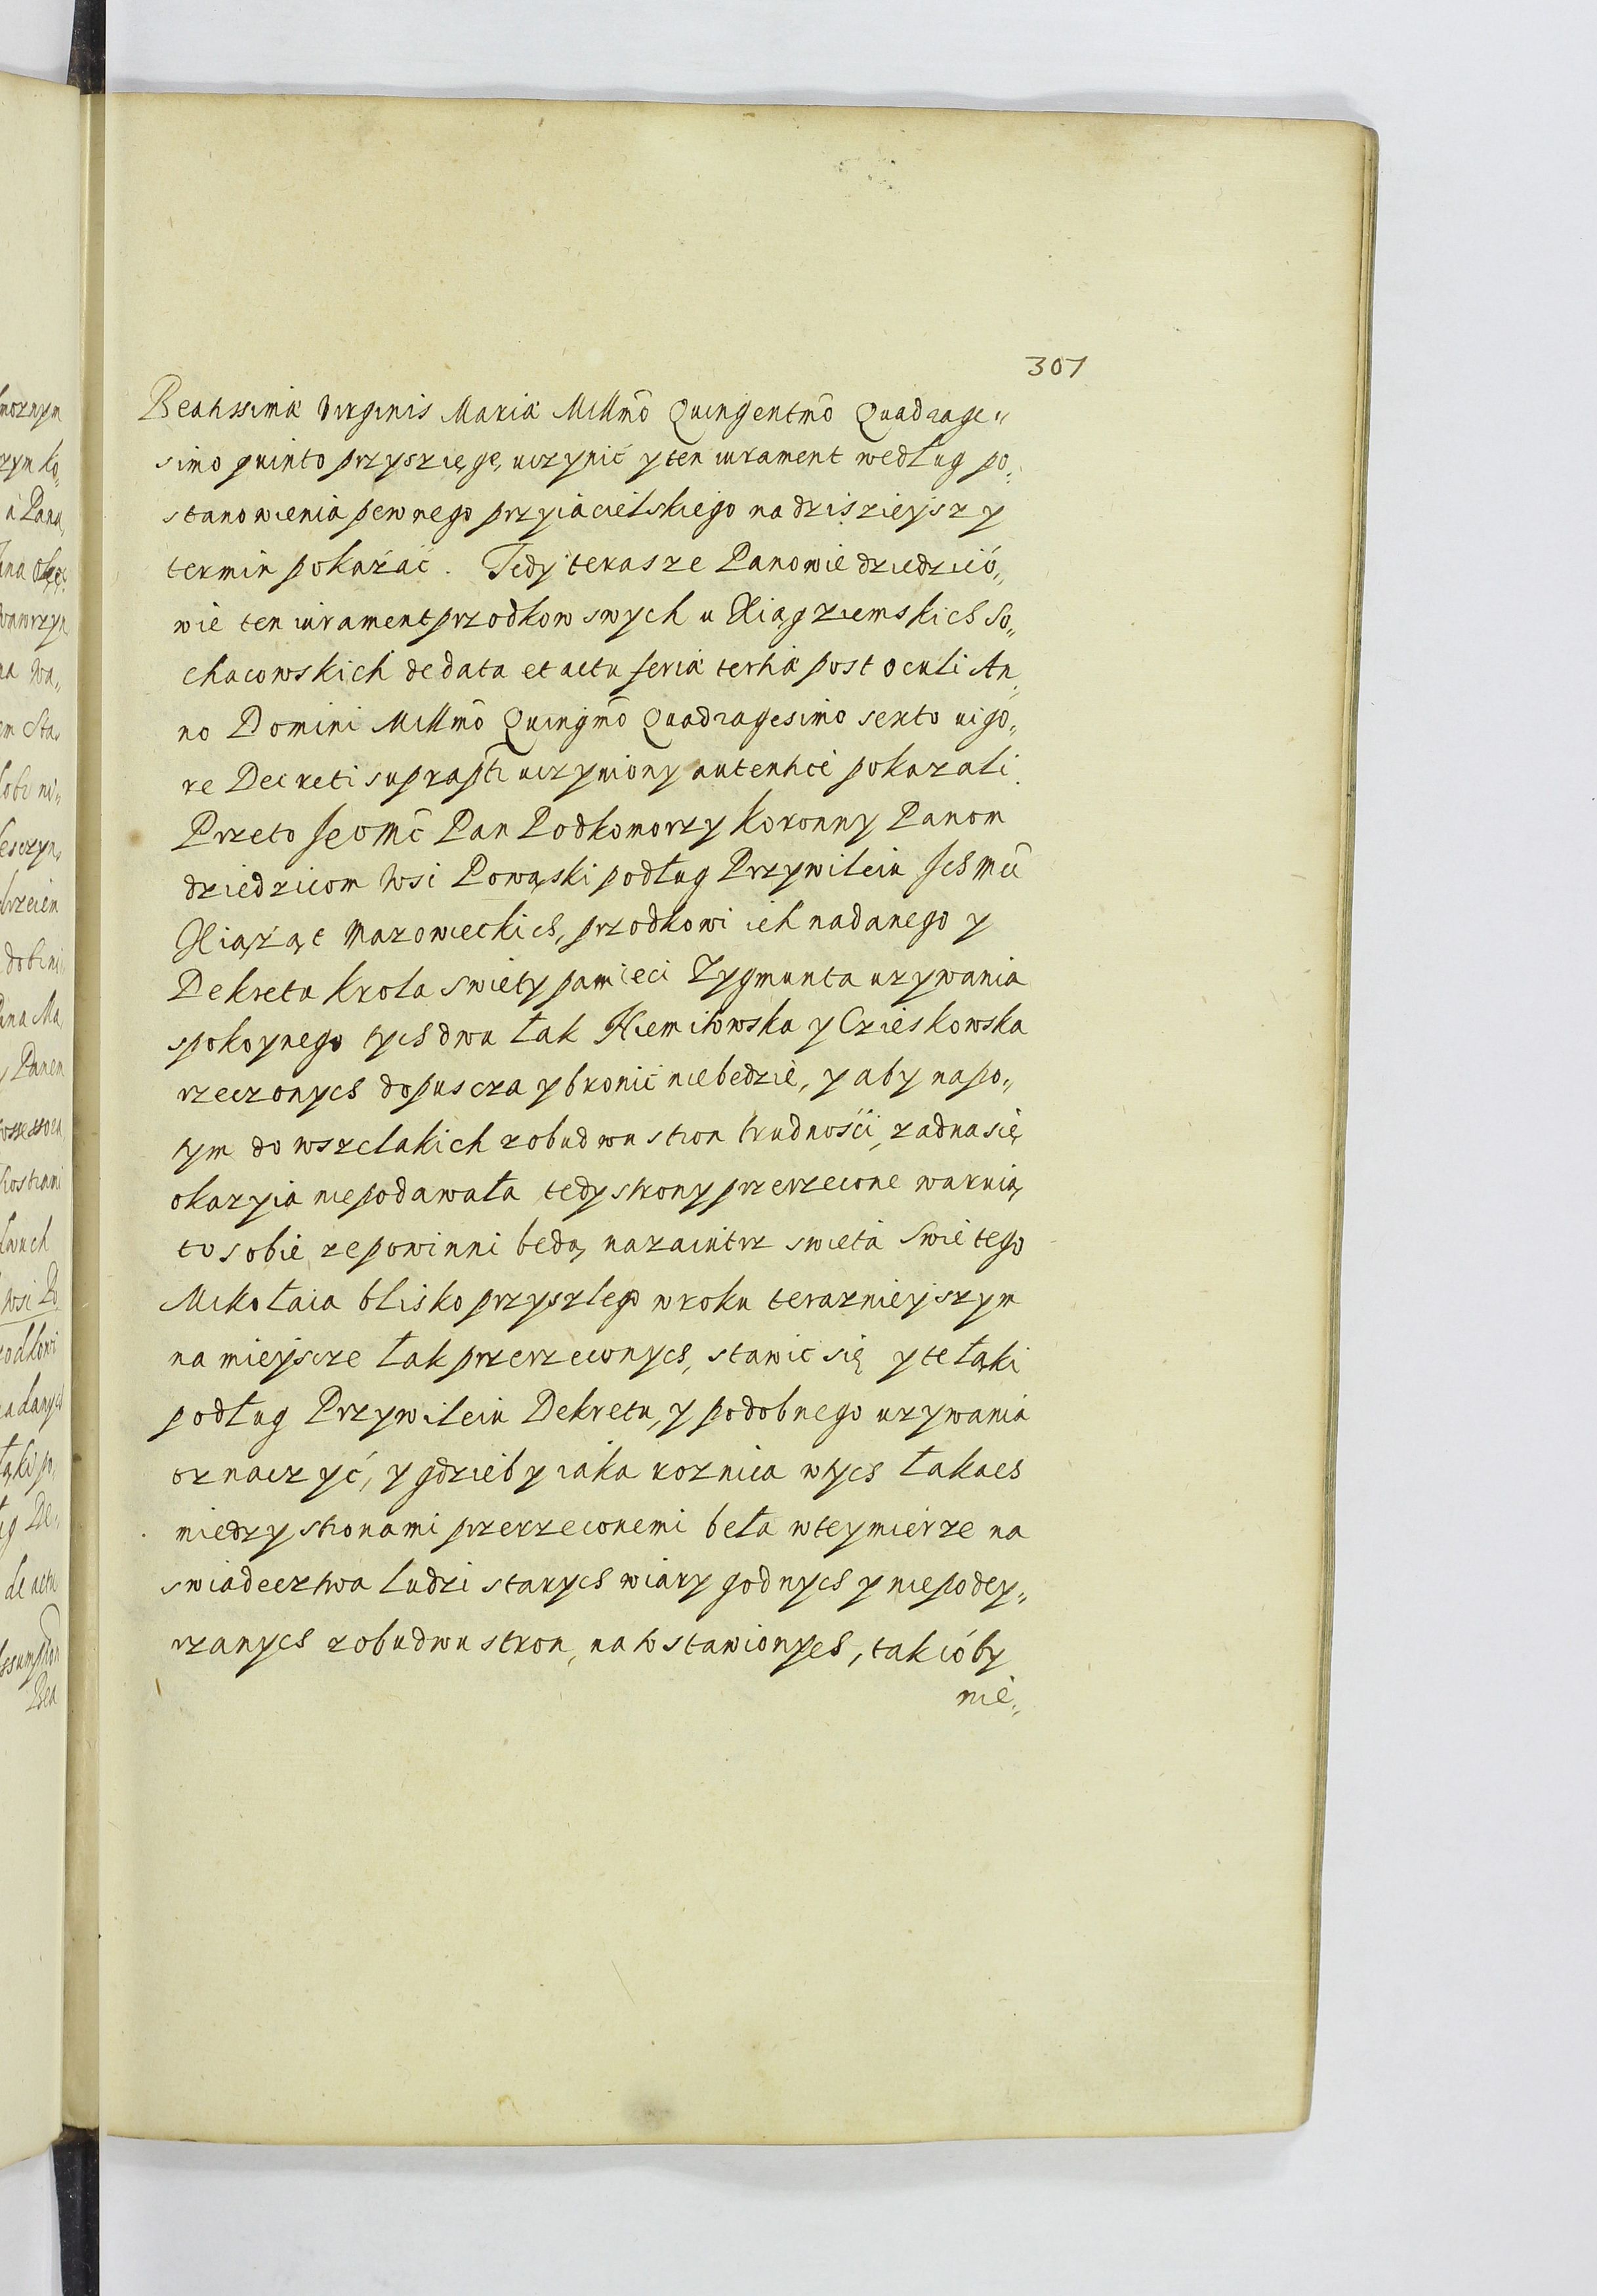 307
Beatissimæ Virginis Mariæ Millm̄o Quingentm̄o Quadrage„
simo quinto przyszięgę uczynić y ten iurament według po„
stanowienia pewnego przyiacielskiego na dzisziejszy
termin pokazać. Tedy terasze Panowie dziedzicó„
wie ten iurament przodkow swych u Xiąg ziemskich So„
chacowskich de data et actu feria tertia post Oculi An„
no Domini Millmō Quingmō Quadragesimo sexto vigo„
re Decreti suprapti uczyniony autentice pokazali.
Przeto Jeomć Pan Podkomorzy Koronny Panom
dziedzicom Wsi Powąski podług Przywileiu Ich Mci
Xiążąt Mazowieckich, przodkowi ich nadanego y
Dekretu Krola swiety pamieci Zygmunta uzywania
spokoynego tych dwu łak Niemilowska y Czieskowska
rzeczonych dopuscza y bronić niebedzie, y aby napo„
tym do wszelakich zobudwu stron trudności, zadna się
okazyia niepodawała tedy strony przerzeczone waruią
to sobie ze powinni bedą nazaiutrz swieta Swietego
Mikołaia blisko przyszlego w roku terazniejszym
na miejscze łak przerzeczonych, stawic się y te łąki
podług Przywileiu Dekretu, y podobnego uzywania
oznaczyć, y gdzieby iaka roznica w tych łakach
miedzy stronami przerzeczonemi beła w tey mierze na
swiadecztwa ludzi starych wiary godnych y niepodey„
rzanych zobudwu stron, na to stawionych, tak coby
nie„
mornym
rzym ko„
a Pana
Wawrzyn
na Wa„
em Sta„
dobini
ana Ma„
y Panem
Wsi Po
łąki po„
ug De„
de actu
ssumption
Bea